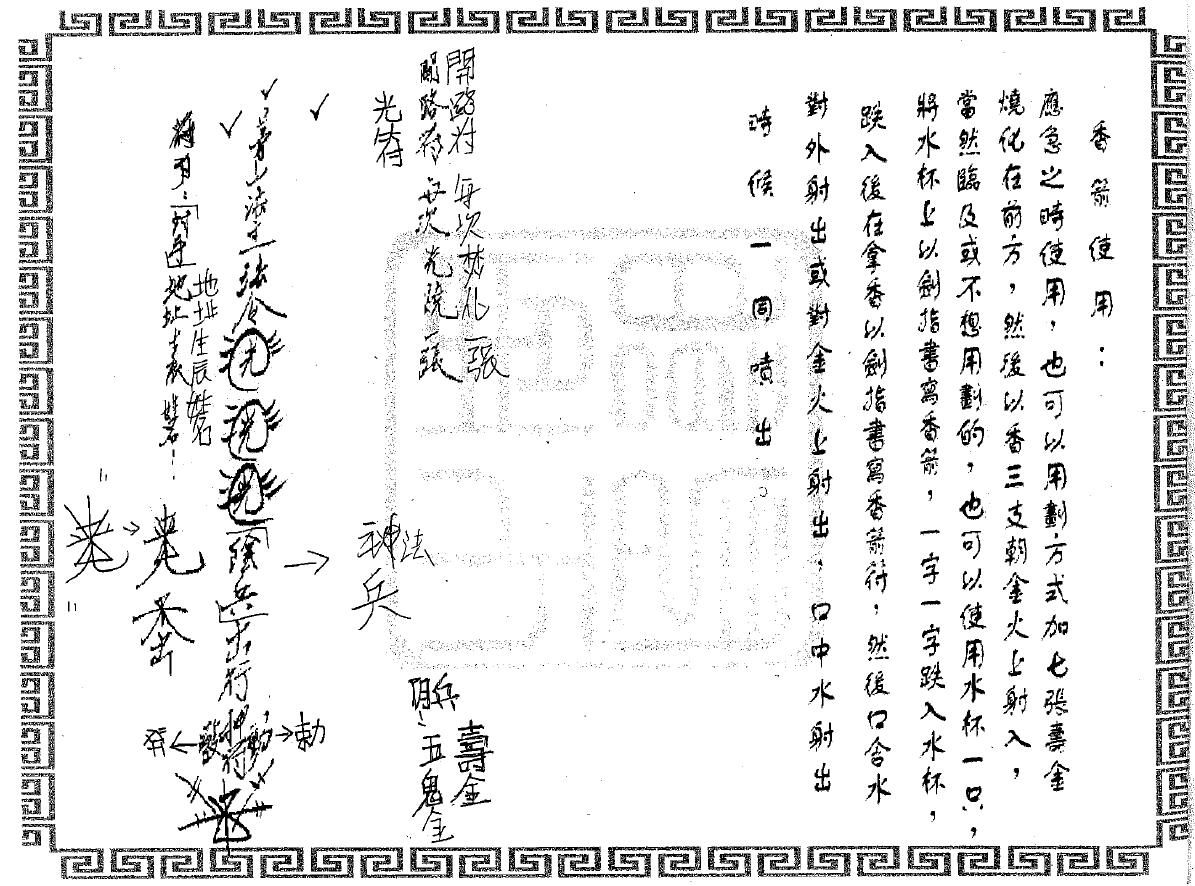 香箭使用：
應急之時使用，也可以用劃方式加七張壽金
燒化在前方，然後以香三支朝金火上射入，
當然臨及或不想用劃的，也可以使用水杯一口，
將水杯上以劍指書寫香箭，一字一字跌入水杯，
跌入後在拿香以劍指書寫香箭符，然後口含水
對外射出或對金火上射出，口中水射出
時候一同噴出
開路符每次焚化一張
開路符每次 一張
光符
神法
兵
兵
壽金
五鬼金
張令
陰兵出行
押
符
勅
發
地址生辰姓名
地址生辰姓名